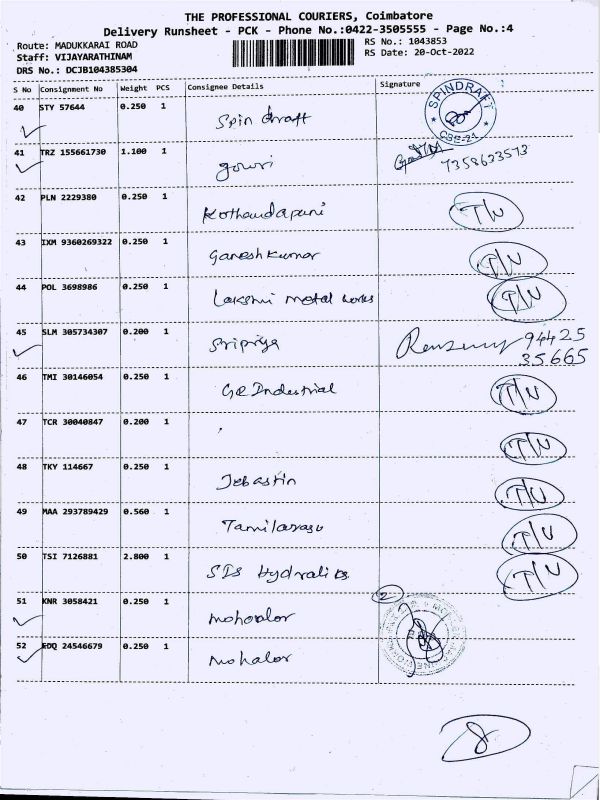 THE PROFESSIONAL COURIERS, Coimbatore
Delivery Runsheet - PCK - Phone No.:0422-3505555 - Page No.:4
Route: MADUKKARAI ROAD
RS No.: 1043853
Staff: VIJAYARATHINAM
RS Date: 20-Oct-2022
DRS No.: DCJB104385304
S No Consignment No Weight PCS Consignee Details Signature
40 STY 57644 0.250 1 Spin draft
SPINDRAFT
CBE-21
41 TRZ 155661730 1.100 1 gowri
7358623573
42 PLN 2229380 0.250 1 Kothandapani T/N
43 IXM 9360269322 0.250 1 Ganesh Kumar T/N
44 POL 3698986 0.250 1 Lakshmi metal works T/N
45 SLM 305734307 0.200 1 Sripriya 94425
35665
46 TMI 30146054 0.250 1 GR Industrial T/N
47 TCR 30040847 0.200 1 T/N
48 TKY 114667 0.250 1 Jebastin T/N
49 MAA 293789429 0.560 1 Tamilarasu T/N
50 TSI 7126881 2.800 1 SIS Hydralics T/N
51 KNR 3058421 0.250 1 2
52 EDQ 24546679 0.250 1
8